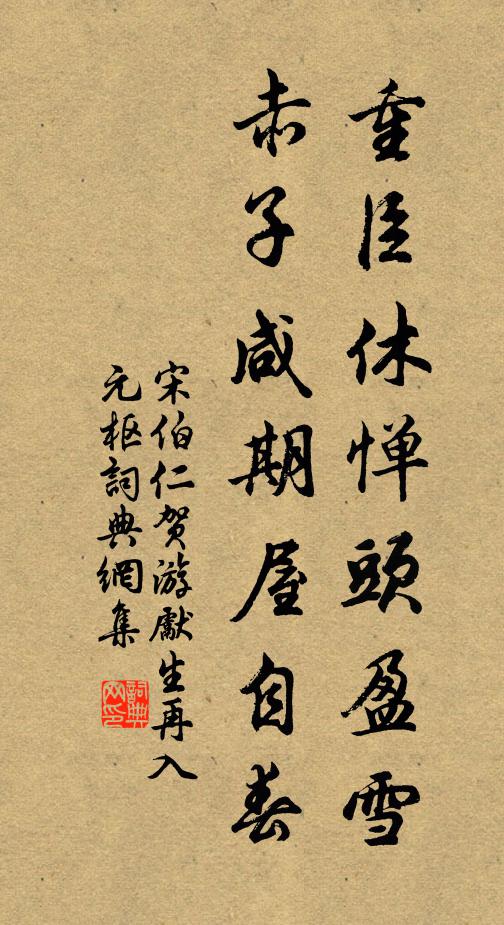 重臣休惮頭盈雪
赤子咸期屋自春
宋伯仁贺游獻生再入
元枢詞典網集
詞典网印